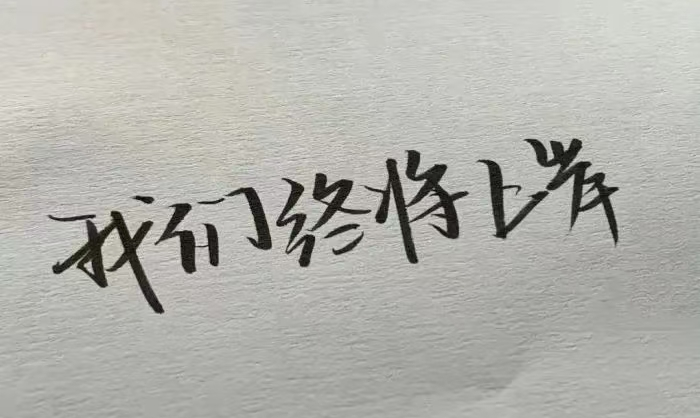 我们终将上岸